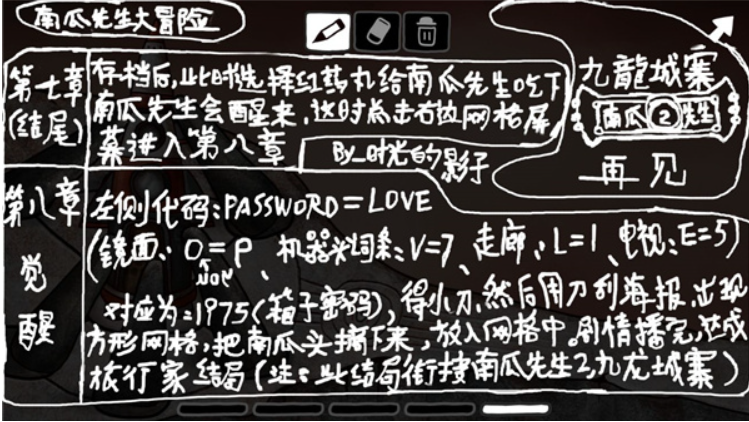 南瓜先生大冒险
第七章
(结尾)
存档后,此时选择红药丸给南瓜先生吃下
南瓜先生会醒来,这时点击右边网格屏
幕进入第八章
By_时光的影子
九龍城寨
南瓜2先生
再见
第八章
觉
醒
左侧代码:PASSWORD=LOVE
(镜面、O=P、机器头词条:V=7、走廊、L=1、电视:E=5)
对应为:1975(箱子密码),得小刀,然后用刀刮海报,出现
方形网格,把南瓜头摘下来,放入网格中,剧情播完,达成
旅行家结局(注:此结局衔接南瓜先生2九龙城寨)